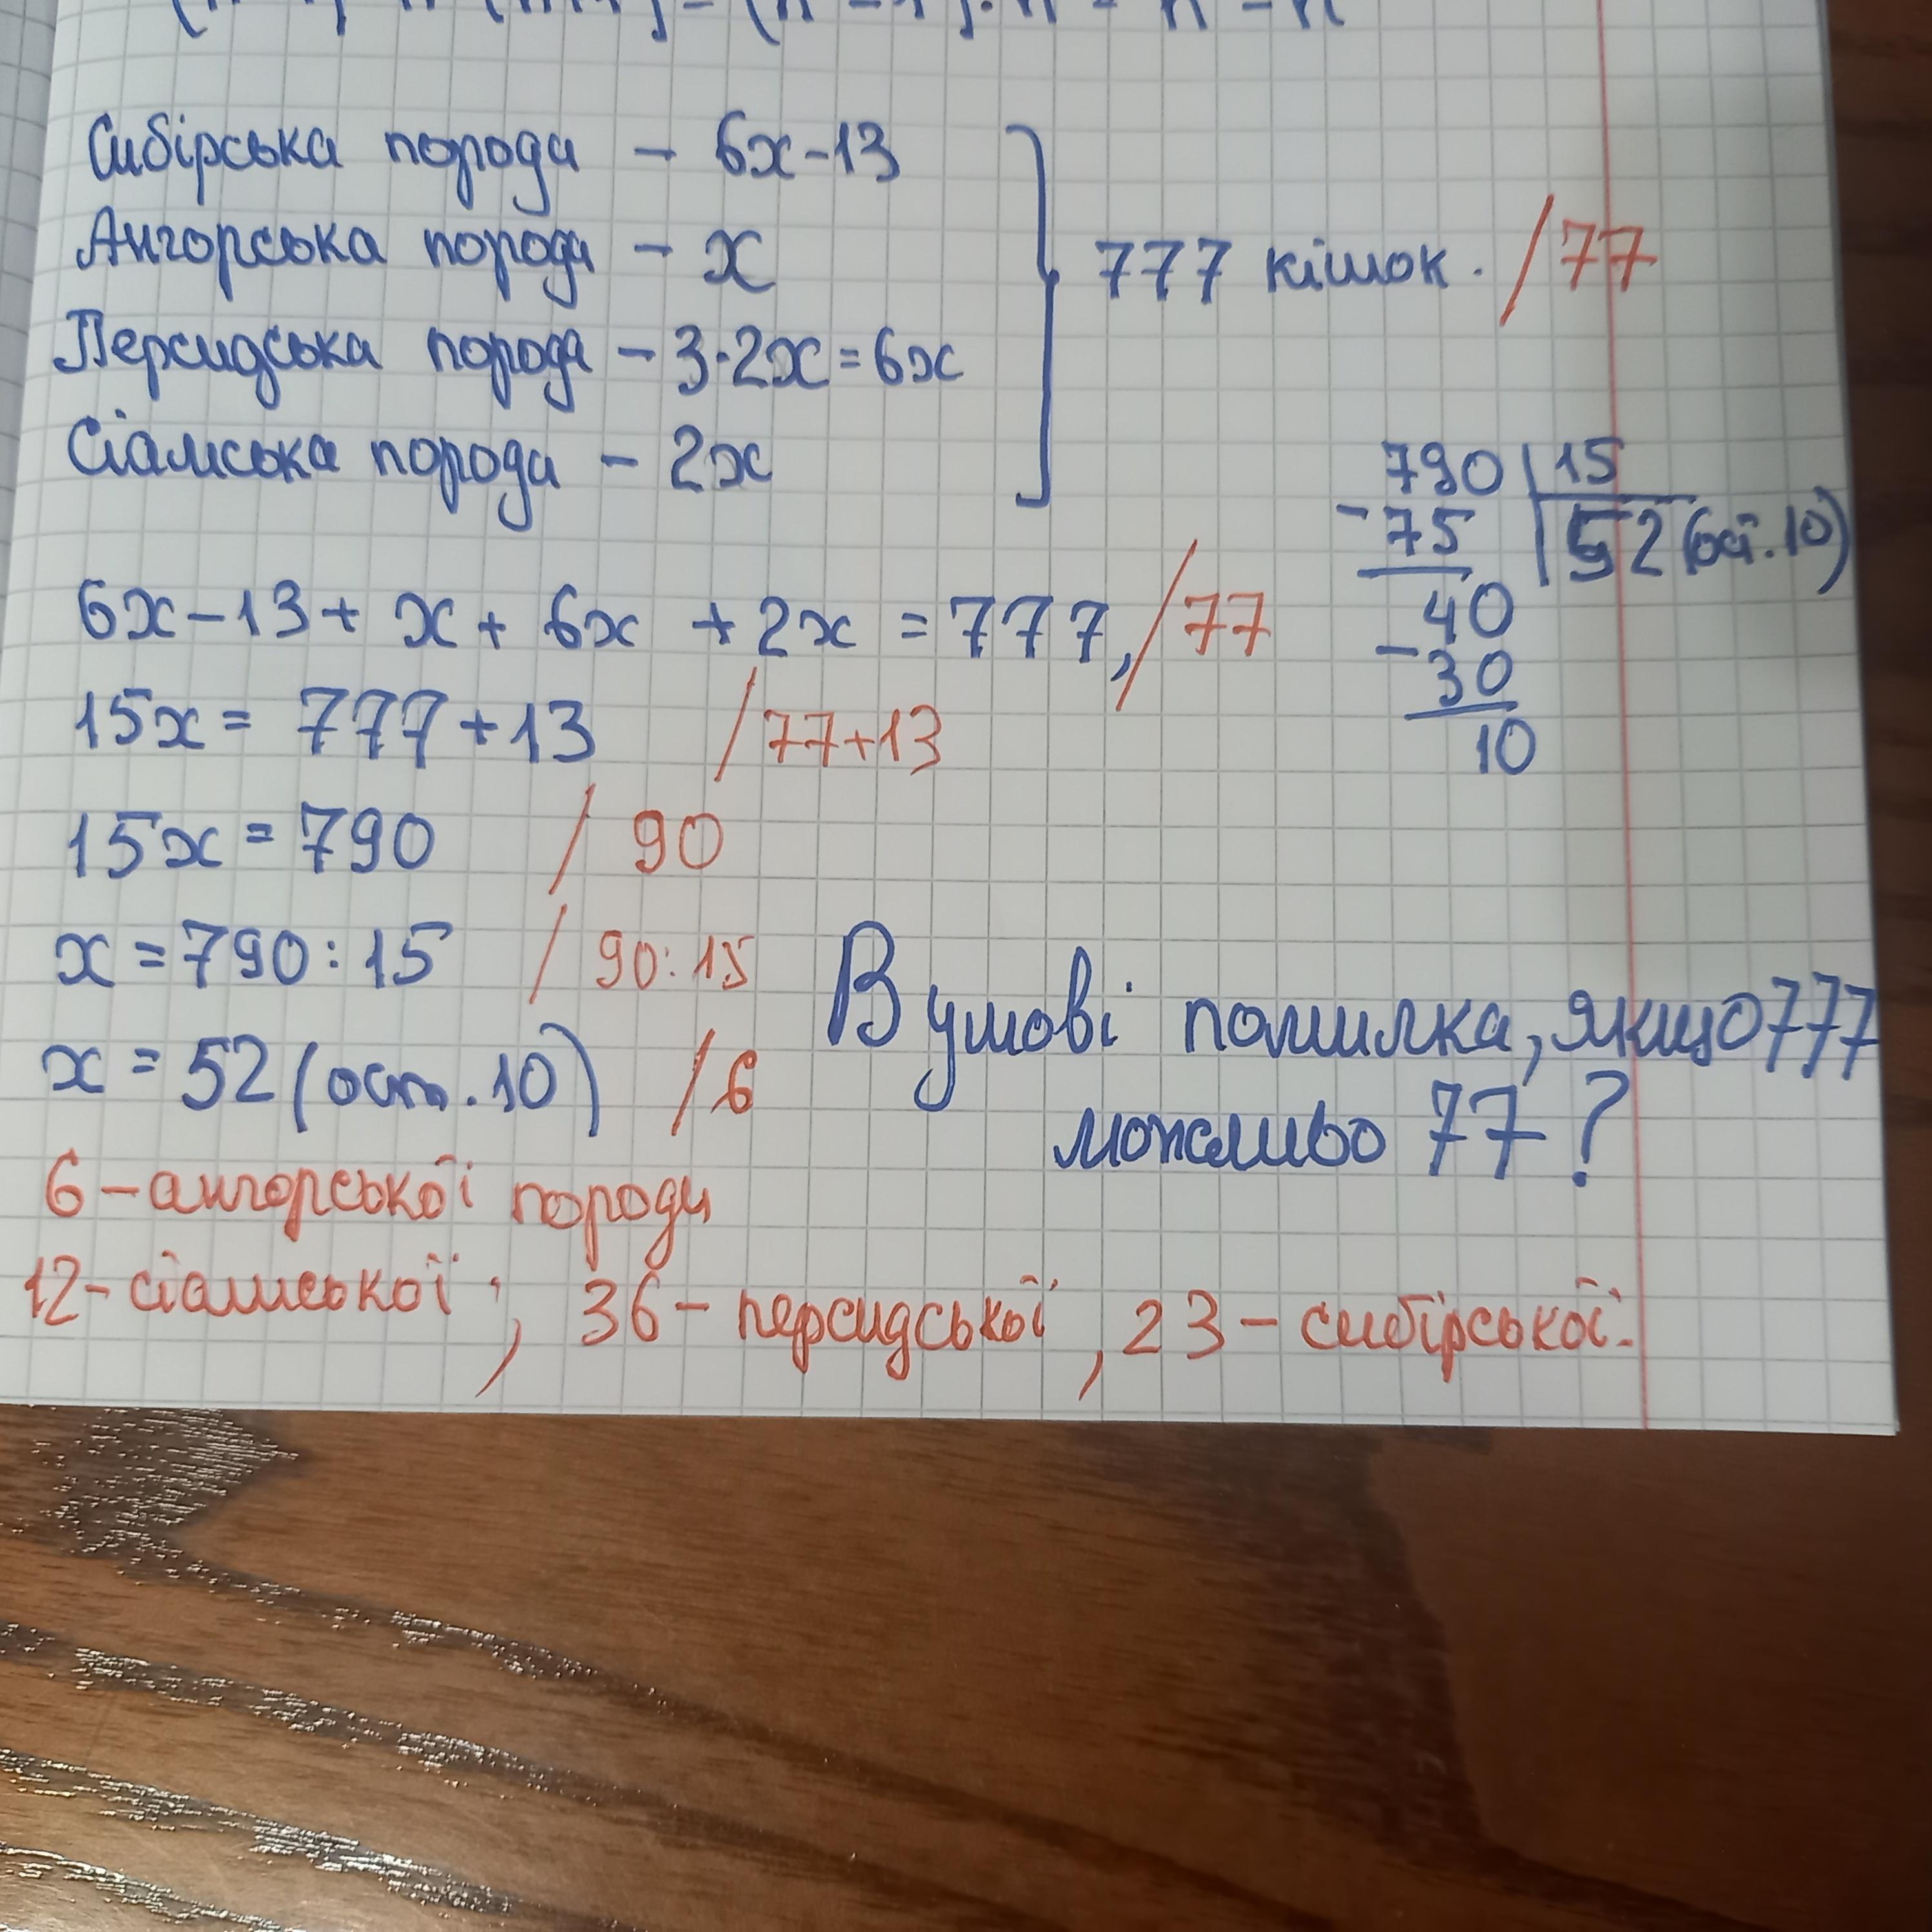 Сибірська порода – 6x-13
Ангорська порода – x
Персидська порода – 3·2x=6x
Сіамська порода – 2x
777 кішок. /77
790 | 15
-75 | 52 (ост.10)
40
-30
10
6x-13+ x+ 6x +2x =777, /77
15x= 777+13 /77+13
15x=790 / 90
x=790:15 / 90:15
x = 52 (ост.10) /6
В умові помилка, якщо 777
можливо 77?
6 – ангорської породи
12- сіамської, 36 – персидської, 23 – сибірської.